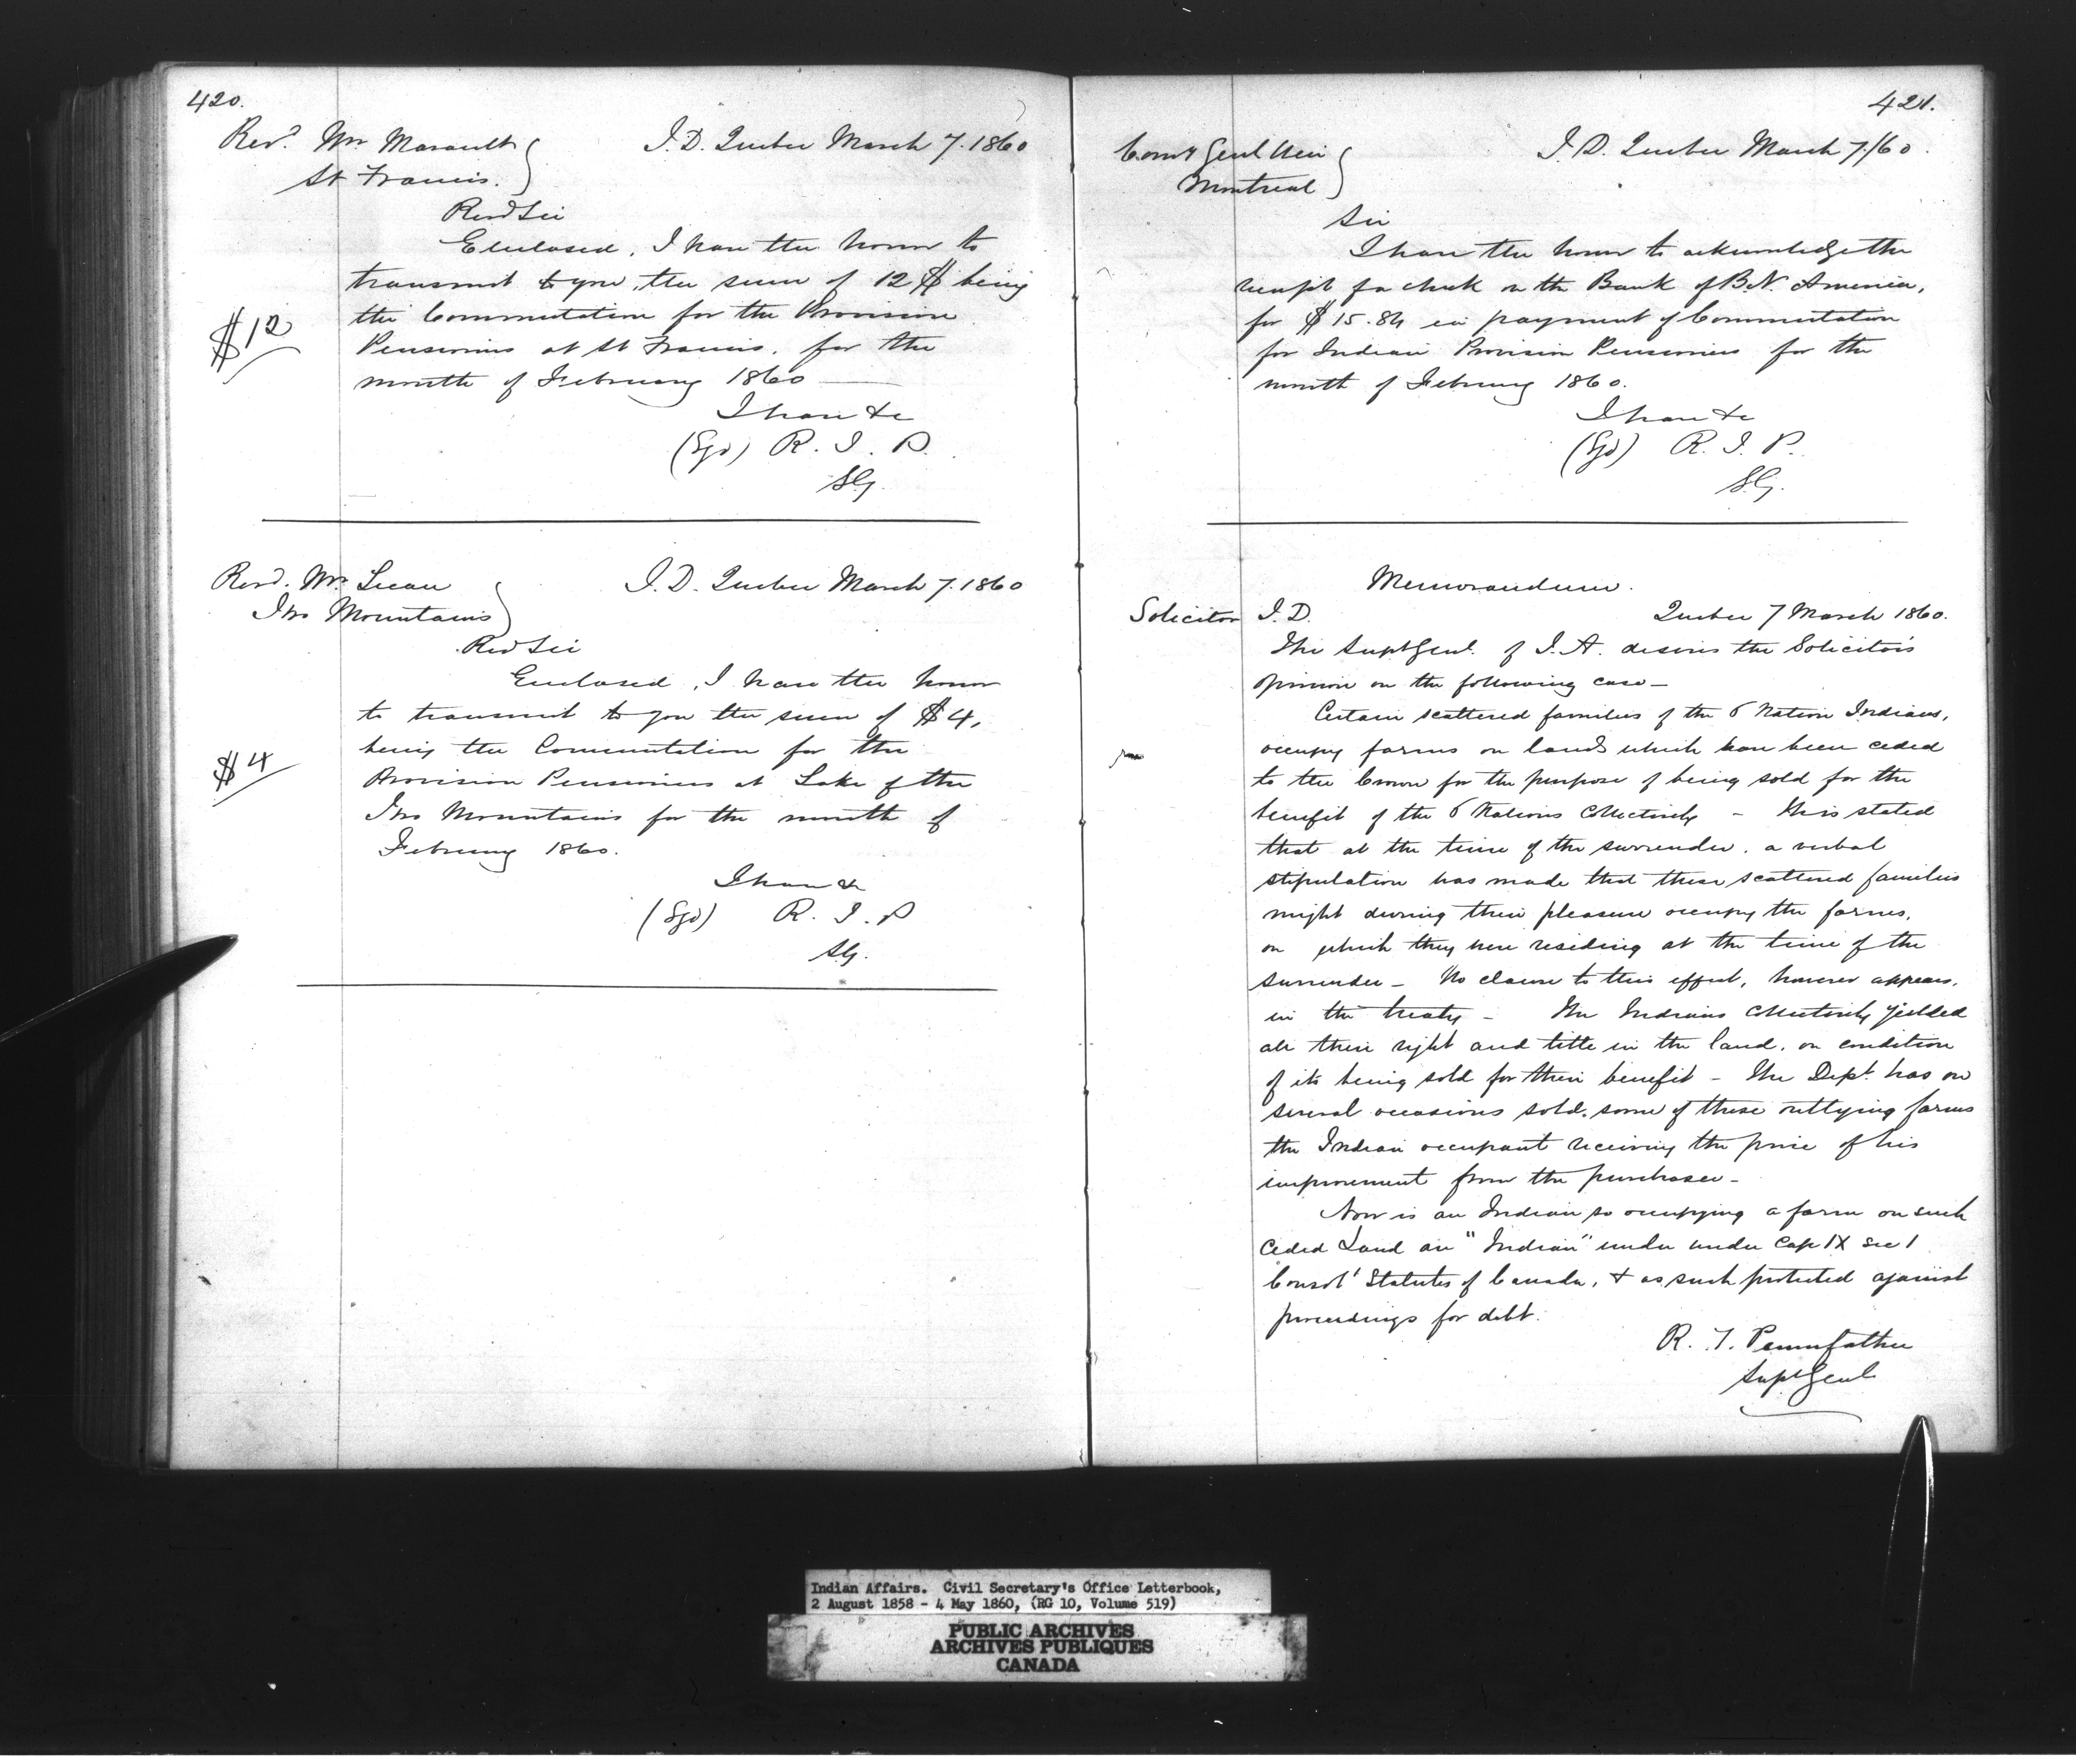 420.
Revd. Mr Marault
St Francis.
I. D. Quebec March 7. 1860
Revd Sir
Enclosed, I have the honor to
transmit to you, the sum of 12 $ being
the Commutation for the Provision
Pensioners at St Francis. for the
month of February 1860
$12
I have &c
(Sgd) R. T. P.
SG.
Revd. Mr.
Two Mountains
I. D. Quebec March 7. 1860
Rev Sir
Enclosed, I have the honor
to transmit to you the sum of $4,
being the Commutation for the
Provision Pensioners at Lake of the
Two Mountains for the month of
February 1860.
$4
I have &c
(Sgd) R. T. P
SG.
421.
Comy Genl Weir
Montreal
I. D. Quebec March 7/60
Sir
I have the honor to acknowledge the
receipt of a check on the Bank of B. N. America,
for $15.84 in payment of Commutation
for Indian Provision Pensioners for the
month of February 1860.
I have &c
(Sgd) R. T. P.
S.G.
Memorandum.
Solicitor I. D. Quebec 7 March 1860.
The Supt Genl. of I. A. desires the Solicitor's
opinion on the following case—
Certain scattered families of the 6 Nation Indians,
occupy farms on lands which have been ceded
to the Crown for the purpose of being sold for the
benefit of the 6 Nations Collectively – It is stated
that at the time of the surrender. a verbal
stipulation was made that these scattered families
might during their pleasure occupy the farms.
on which they were residing at the time of the
surrender— No clause to this effect, however appears.
in the treaty – The Indians Collectively yielded
all their right and title in the land. on condition
of its being sold for their benefit – The Dept. has on
several occasions sold. some of these outlying farms
the Indian occupant receiving the price of his
improvement from the purchaser—
Now is an Indian so occupying a farm on such
Ceded Land an "Indian" under under Cap IX sec 1
Consol' Statutes of Canada, & as such protected against
proceedings for debt.
R. T. Pennefather
Supt Genl
Indian Affairs. Civil Secretary's Office Letterbook,
2 August 1858 - 4 May 1860, (RG 10, Volume 519)
PUBLIC ARCHIVES
ARCHIVES PUBLIQUES
CANADA